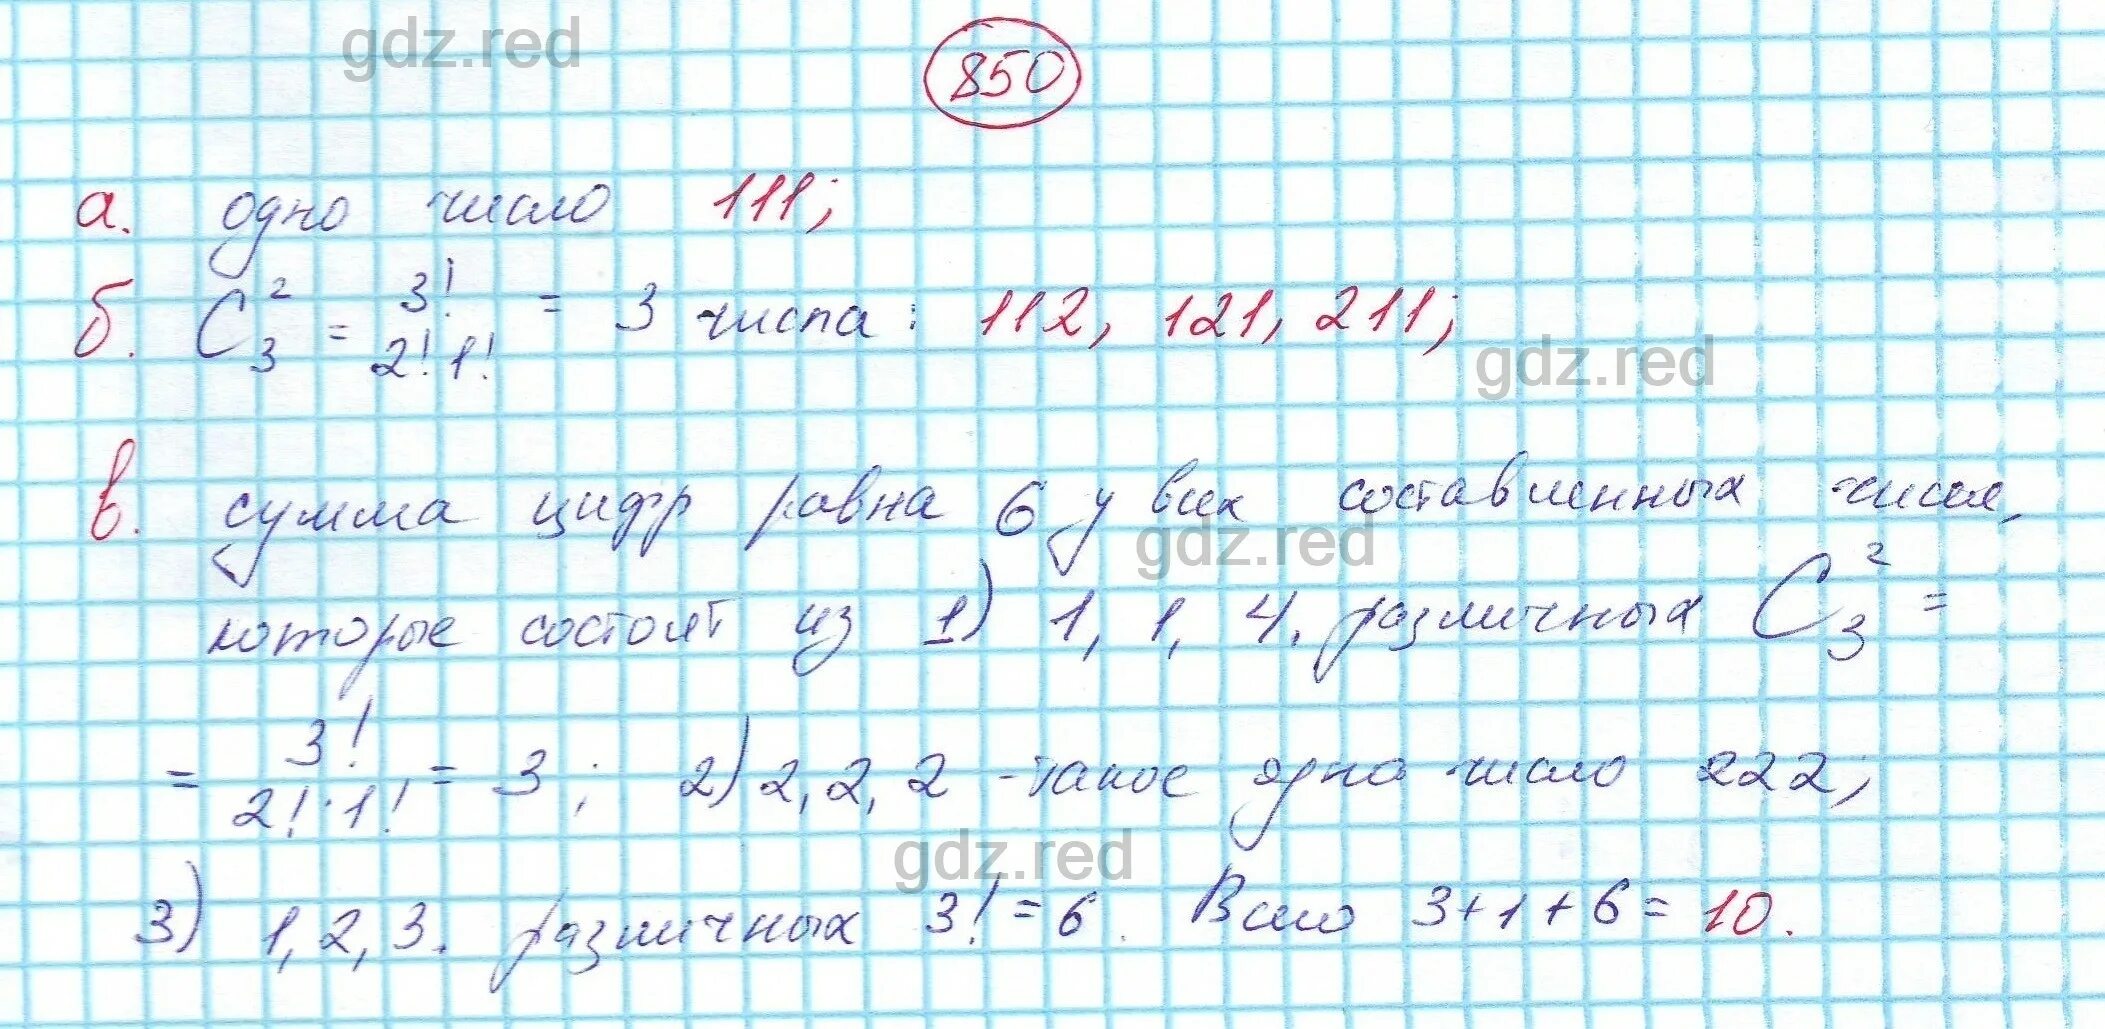 gdz.red
850
а. одно число 111;
б. C₃² = 3!/2!1! = 3 числа: 112, 121, 211;
gdz.red
в. сумма цифр равна 6 у всех составленных чисел,
gdz.red
которые состоят из 1) 1, 1, 4. различных C₃² =
= 3!/2!·1! = 3; 2) 2, 2, 2 - такое одно число 222;
gdz.red
3) 1, 2, 3. различных 3! = 6. Всего 3+1+6 = 10.